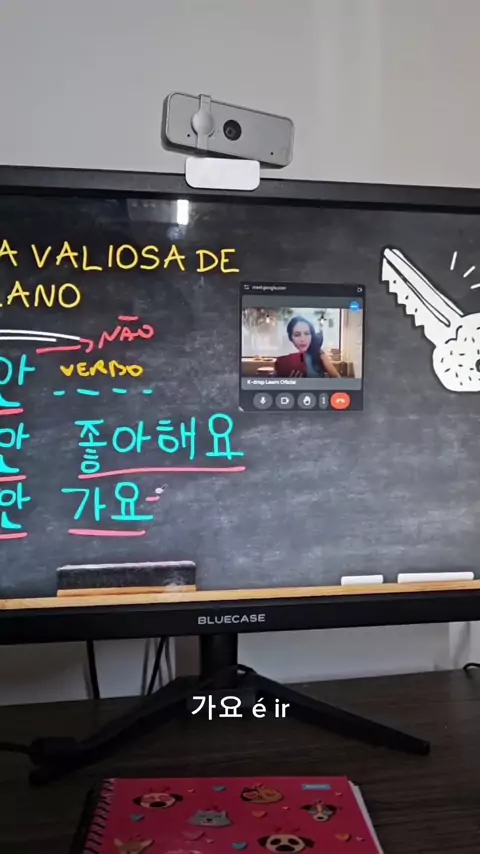 A VALIOSA DE
ANO
NÃO
안 VERBO
안 좋아해요
안 가요 =
meet.google.com
K-drop Learn Oficial
BLUECASE
가요 é ir